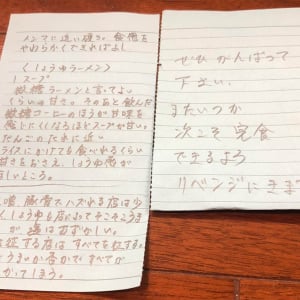 メンマに近い硬さ。食感を
やわらかくできればよし
(しょうゆラーメン)
1 スープ
砂糖ラーメンと言ってよい
くらいの甘さ。そのあと飲んだ
微糖コーヒーのほうが甘味を
感じにくくなるほどスープが甘い。
だんごのたれに近い
ライスにかけても食べれるくらい
甘さをおさえ、しょうゆ感が
ほしいところ。
豚骨をハズれる店は少
しょうゆも店によってそこそこうま
が 選はむずかしい。
を征する店は すべてを征する。
うまいか否かですべてが
かってしまう。
ぜひ がんばって
下さい。
またいつか
次こそ完食
できるよう
リベンジにきま